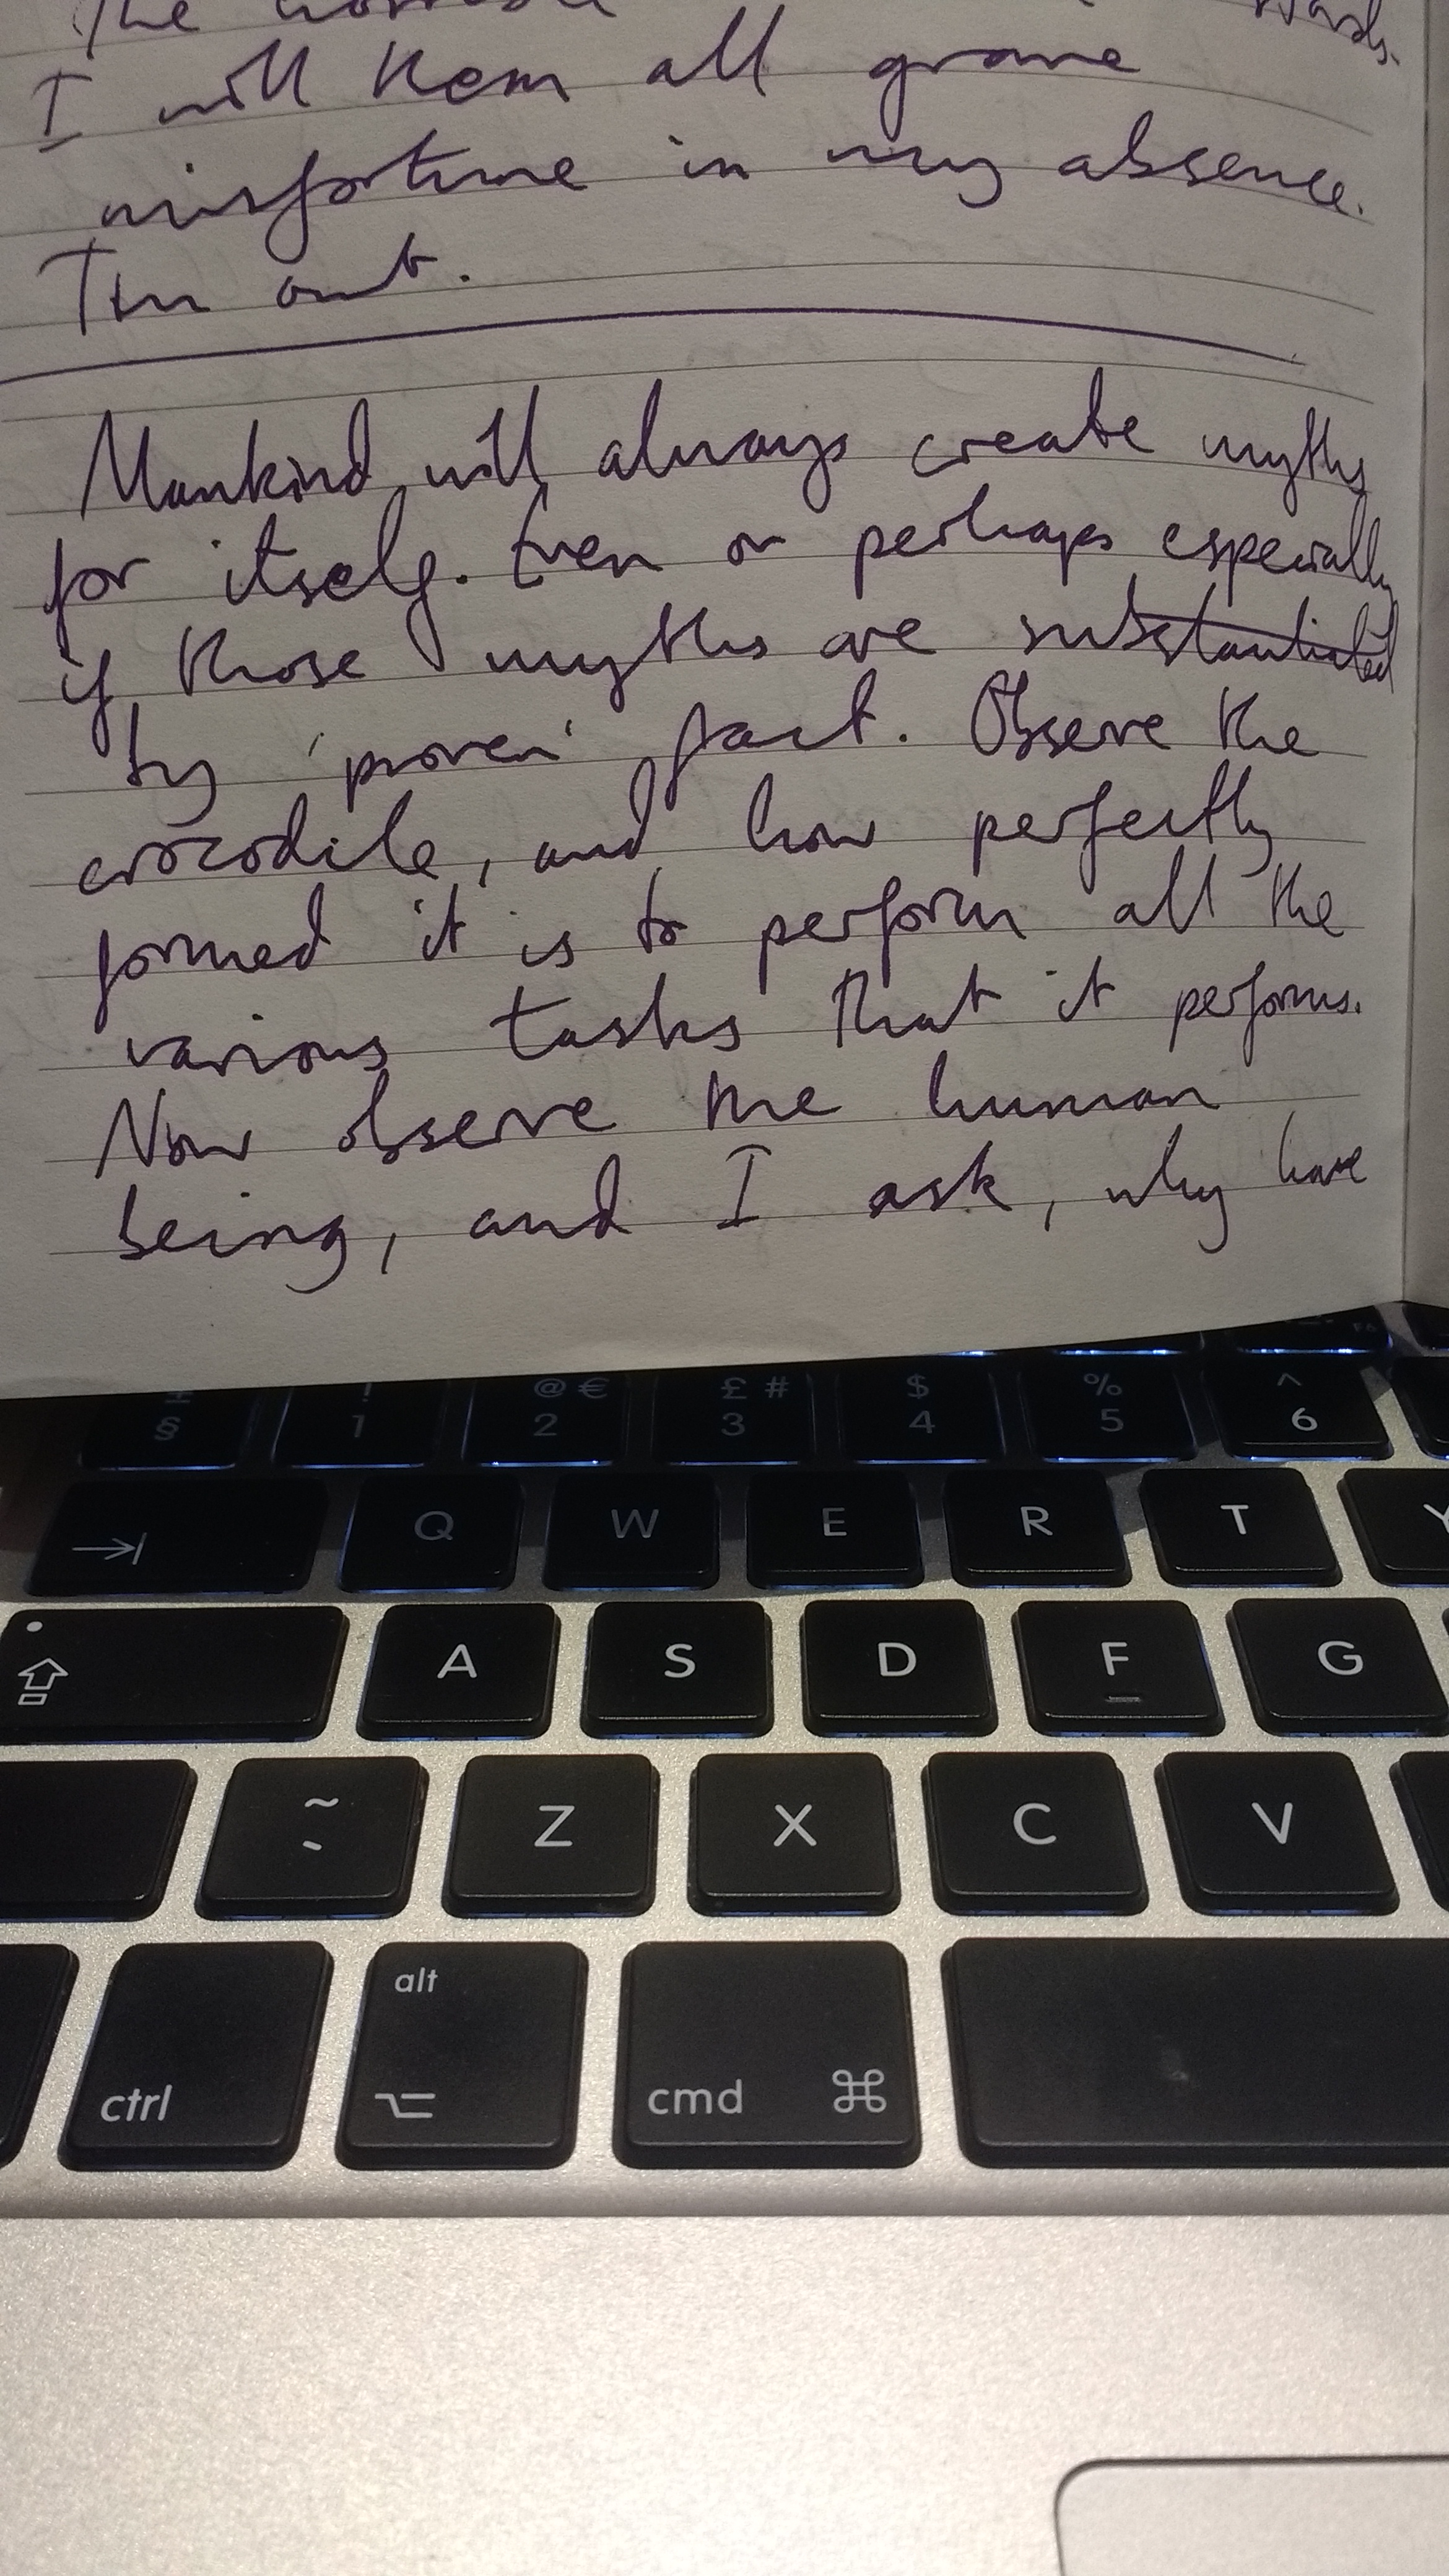 The
I will them all grave
misfortune in my absence.
Tim out.
Mankind will always create myths
for itself. Even or perhaps especially
if those myths are substantiated
by 'proven' fact. Observe the
crocodile, and how perfectly
formed it is to perform all the
various tasks that it performs.
Now observe the human
being, and I ask, why have
± ! @ € £ # $ % ^
§ 1 2 3 4 5 6
Q W E R T Y
A S D F G
~ Z X C V
`
alt
ctrl cmd ⌘